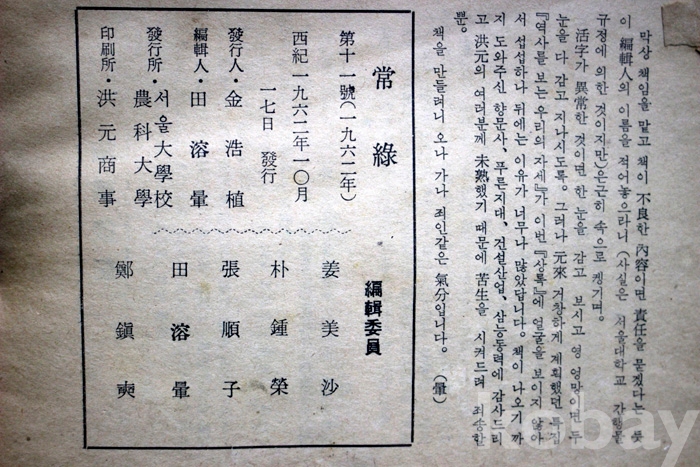 막상 책임을 맡고 책이 不良한 內容이면 責任을 묻겠다는 뜻
이 編輯人의 이름을 적어놓으라니 (사실은 서울대학교 간행물
규정에 의한 것이지만) 은근히 속으로 켕기며。
活字가 異常한 것이면 한 눈을 감고 보시고 영 엉망이면 두
눈을 다 감고 지나시도록。 그러나 元來 거창하게 계획했던 특집
『역사를 보는 우리의 자세』가 이번 『상록』에 얼굴을 보이지 않아
서 섭섭하나 뒤에는 이유가 너무나 많았답니다。 책이 나오기 까
지 도와주신 향문사、 푸른지대、 건설산업、 삼능동력에 감사드리
고 洪元의 여러분께 未熟했기 때문에 苦生을 시켜드려 죄송할
뿐。
책을 만들려니 오나 가나 죄인같은 氣分입니다。 (暈)
常綠
第十一號(一九六二年)
西紀 一九六二年 一〇月
一七日 發行
發行人・金浩植
編輯人・田溶暈
發行所・서울大學校
農科大學
印刷所・洪元商事
編輯委員
姜美沙
朴鍾榮
張順子
田溶暈
鄭鎭
kobay